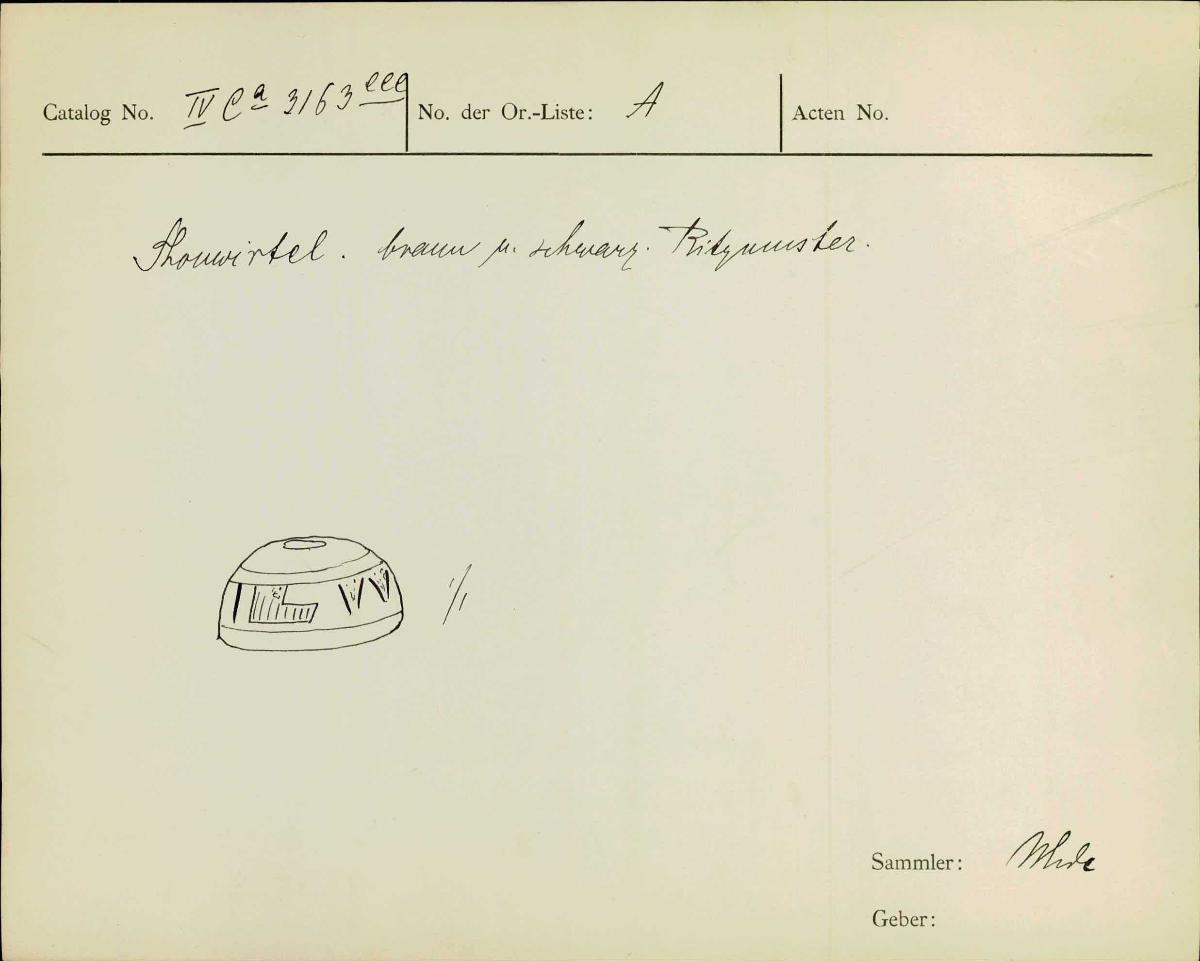 Catalog No. IV Ca 3163 eee No. der Or.-Liste: A Acten No.
Thonwirtel. braun u. schwarz. Ritzmuster.
1/1
Sammler: Uhde
Geber: